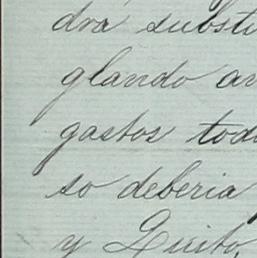 drá substi
glando an
gastos tod
so deberia
y Quito,